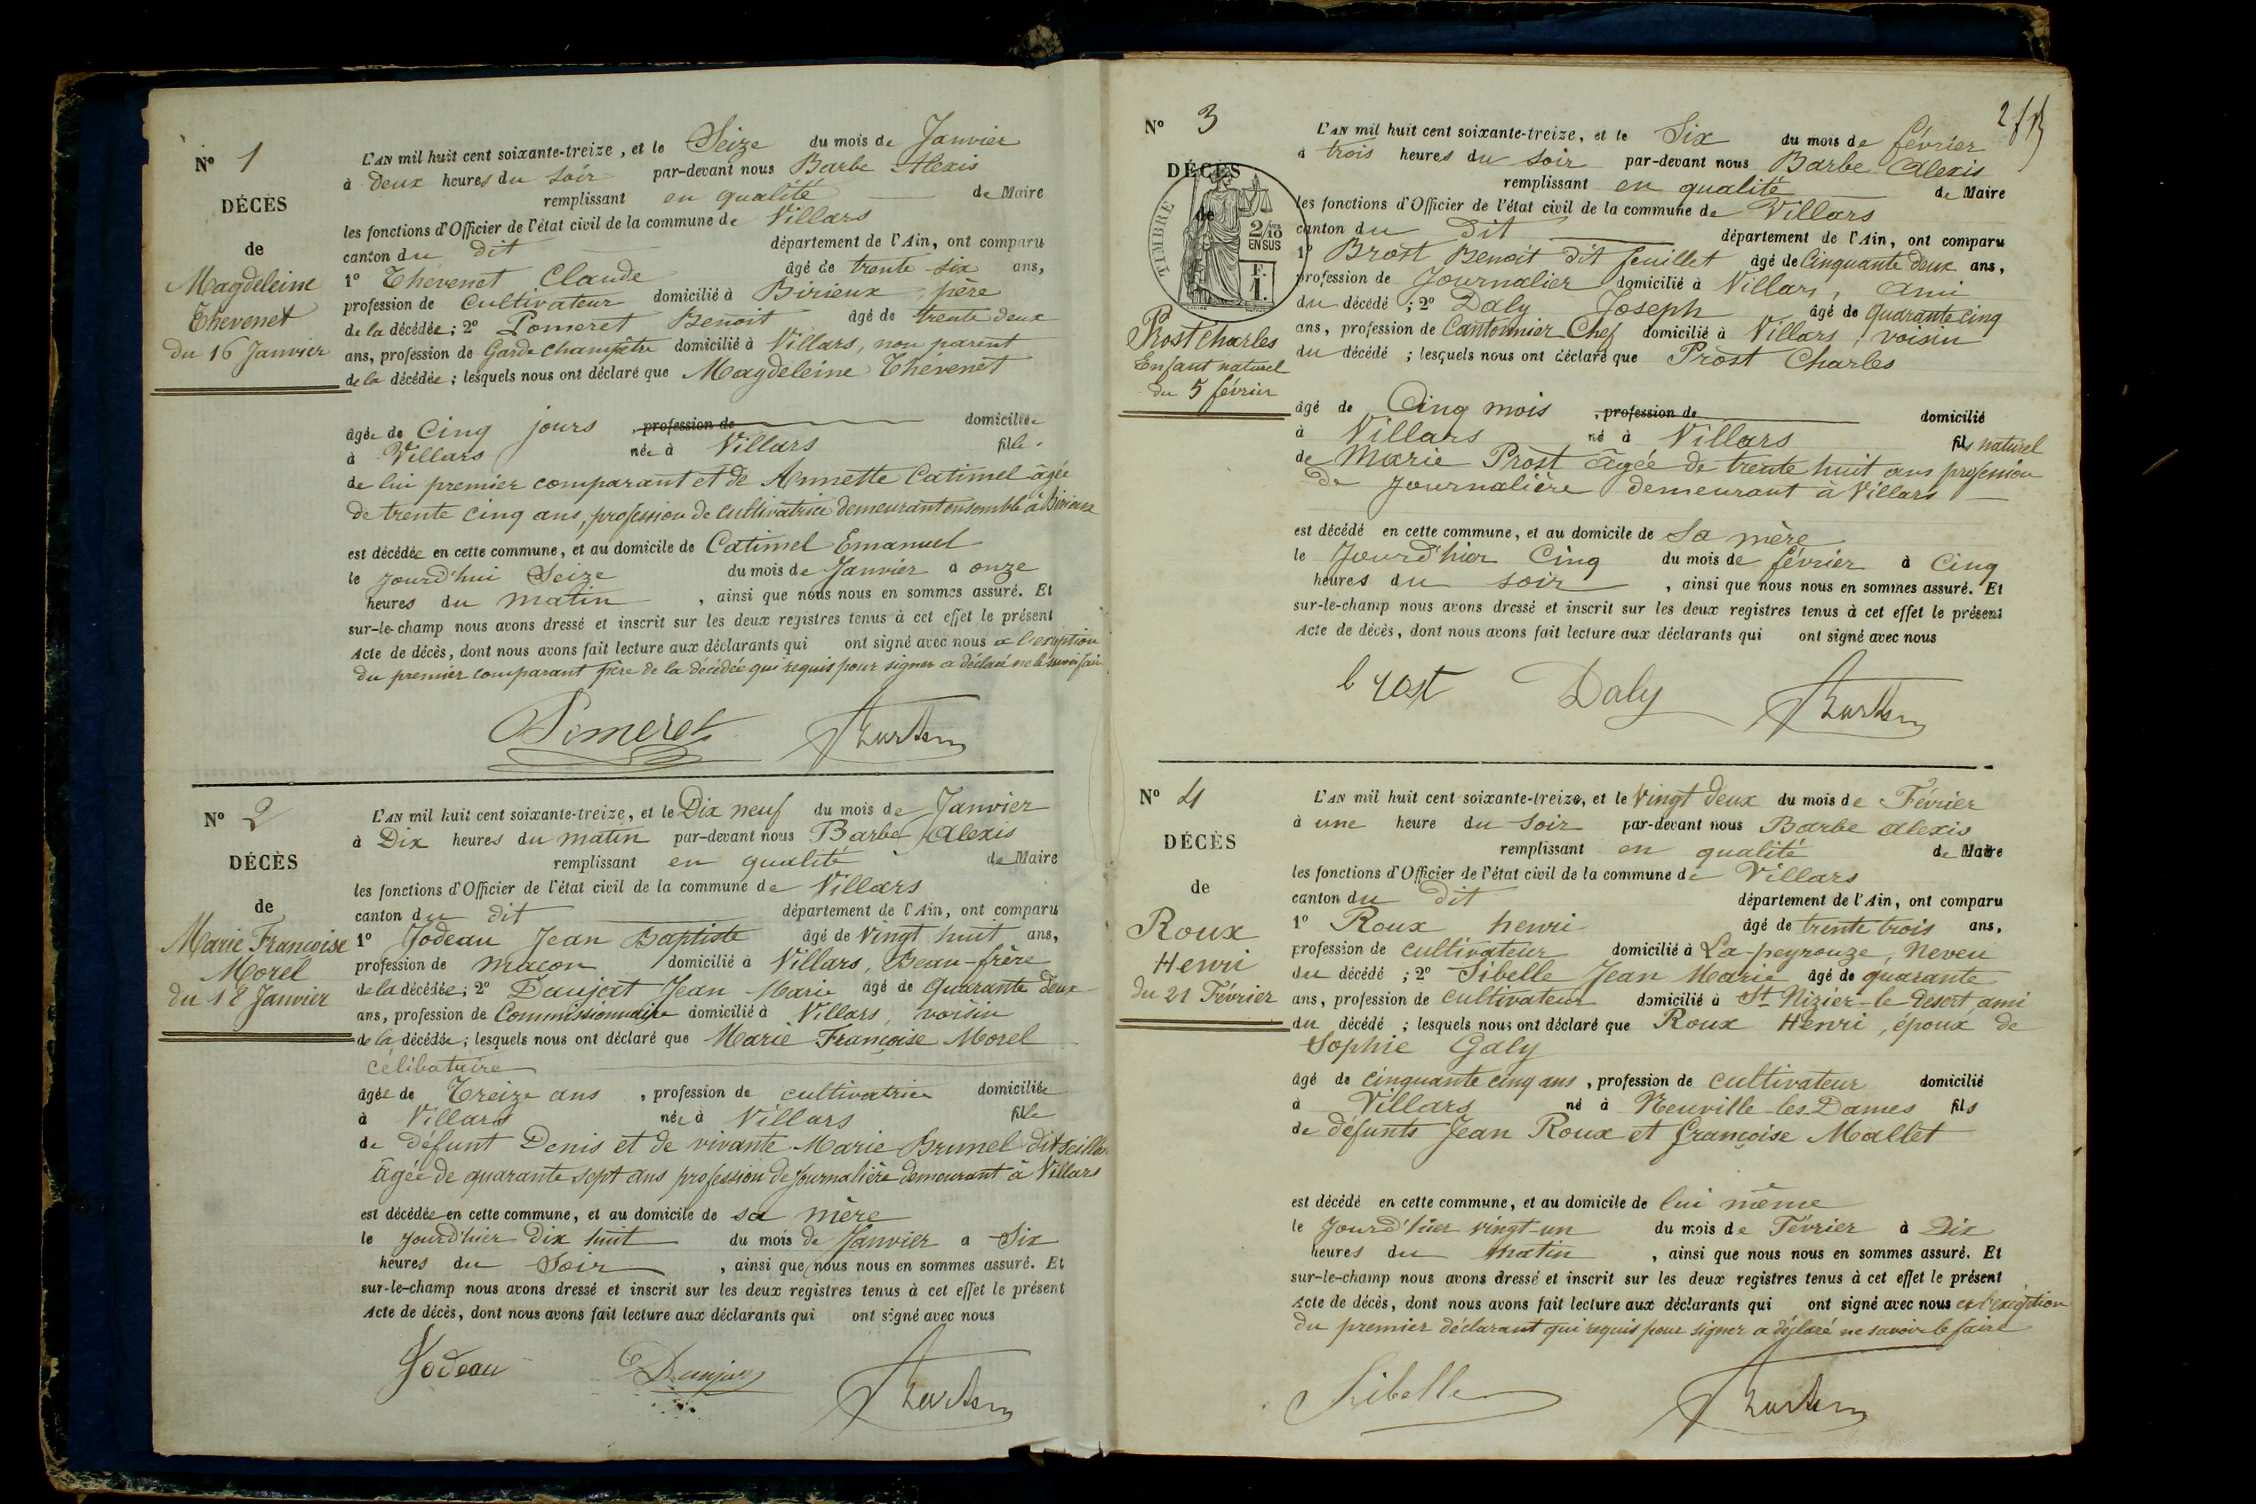 N° 1
DÉCÈS
de
Magdeleine
Thévenet
du 16 Janvier
L'AN mil huit cent soixante-treize, et le Seize du mois de Janvier
à deux heures du soir par-devant nous Barbe Alexis
remplissant en qualité de Maire
les fonctions d'Officier de l'état civil de la commune de Villars
canton du dit département de l'Ain, ont comparu
1° Thévenet Claude âgé de trente-six ans,
profession de Cultivateur domicilié à Birieux, père
de la décédée; 2° Pomeret Benoit âgé de trente deux
ans, profession de Garde champêtre domicilié à Villars, non parent
de la décédée; lesquels nous ont déclaré que Magdeleine Thévenet
âgée de Cinq jours, profession de domiciliée
à Villars née à Villars fille
de lui premier comparant et de Annette Catimel âgée
de trente cinq ans, profession de cultivatrice demeurant ensemble à Birieux
est décédée en cette commune, et au domicile de Catimel Emanuel
le jourd'hui Seize du mois de Janvier à onze
heures du matin, ainsi que nous nous en sommes assuré. Et
sur-le-champ nous avons dressé et inscrit sur les deux registres tenus à cet effet le présent
Acte de décès, dont nous avons fait lecture aux déclarants qui ont signé avec nous a l'exception
du premier comparant père de la décédée qui requis pour signer a déclaré ne le savoir faire
Pomeret
N° 2
DÉCÈS
de
Marie Françoise
Morel
du 18 Janvier
L'AN mil huit cent soixante-treize, et le Dix neuf du mois de Janvier
à Dix heures du matin par-devant nous Barbe Alexis
remplissant en qualité de Maire
les fonctions d'Officier de l'état civil de la commune de Villars
canton du dit département de l'Ain, ont comparu
1° Jodeau Jean Baptiste âgé de Vingt huit ans,
profession de maçon domicilié à Villars, Beau-frère
de la décédée; 2° Daujat Jean Marie âgé de Quarante deux
ans, profession de Commissionnaire domicilié à Villars, voisin
de la décédée; lesquels nous ont déclaré que Marie Françoise Morel
célibataire
âgée de Treize ans, profession de cultivatrice domiciliée
à Villars née à Villars fille
de défunt Denis et de vivante Marie Brunel dit
âgée de quarante sept ans profession de journalière demeurant à Villars
est décédée en cette commune, et au domicile de sa mère
le jourd'hier Dix huit du mois de Janvier a Six
heures du Soir, ainsi que nous nous en sommes assuré. Et
sur-le-champ nous avons dressé et inscrit sur les deux registres tenus à cet effet le présent
Acte de décès, dont nous avons fait lecture aux déclarants qui ont signé avec nous
Jodeau Daujat
N° 3
DÉCÈS
de
TIMBRE
2/10
EN SUS
Prost Charles
Enfant naturel
du 5 février
L'AN mil huit cent soixante-treize, et le Six du mois de février
à trois heures du soir par-devant nous Barbe Alexis
remplissant en qualité de Maire
les fonctions d'Officier de l'état civil de la commune de Villars
canton du Dit département de l'Ain, ont comparu
1° Brost Benoit dit feuillet âgé de Cinquante deux ans,
profession de Journalier domicilié à Villars, ami
du décédé; 2° Daly Joseph âgé de Quarante cinq
ans, profession de Cantonnier Chef domicilié à Villars, voisin
du décédé; lesquels nous ont déclaré que Prost Charles
âgé de Cinq mois, profession de domicilié
à Villars né à Villars fils naturel
de Marie Prost âgée de trente huit ans profession
de Journalière demeurant à Villars
est décédé en cette commune, et au domicile de Sa mère
le Jourd'hier Cinq du mois de février à Cinq
heures du soir, ainsi que nous nous en sommes assuré. Et
sur-le-champ nous avons dressé et inscrit sur les deux registres tenus à cet effet le présent
Acte de décès, dont nous avons fait lecture aux déclarants qui ont signé avec nous
brost Daly
N° 4
DÉCÈS
de
Roux
Henri
du 21 Février
L'AN mil huit cent soixante-treize, et le Vingt deux du mois de Février
à une heure du Soir par-devant nous Barbe Alexis
remplissant en qualité de Maire
les fonctions d'Officier de l'état civil de la commune de Villars
canton du dit département de l'Ain, ont comparu
1° Roux henri âgé de trente trois ans,
profession de cultivateur domicilié à La peyrouze, Neveu
du décédé; 2° Sibelle Jean Marie âgé de quarante
ans, profession de cultivateur domicilié à St Nizier-le Desert, ami
du décédé; lesquels nous ont déclaré que Roux Henri, époux de
Sophie Galy
âgé de cinquante cinq ans, profession de cultivateur domicilié
à Villars né à Neuville-les-Dames fils
de défunts Jean Roux et françoise Mallet
est décédé en cette commune, et au domicile de lui même
le jourd'hier vingt-un du mois de Février à Dix
heures du matin, ainsi que nous nous en sommes assuré. Et
sur-le-champ nous avons dressé et inscrit sur les deux registres tenus à cet effet le présent
Acte de décès, dont nous avons fait lecture aux déclarants qui ont signé avec nous a l'exception
du premier déclarant qui requis pour signer a déclaré ne savoir le faire
Sibelle